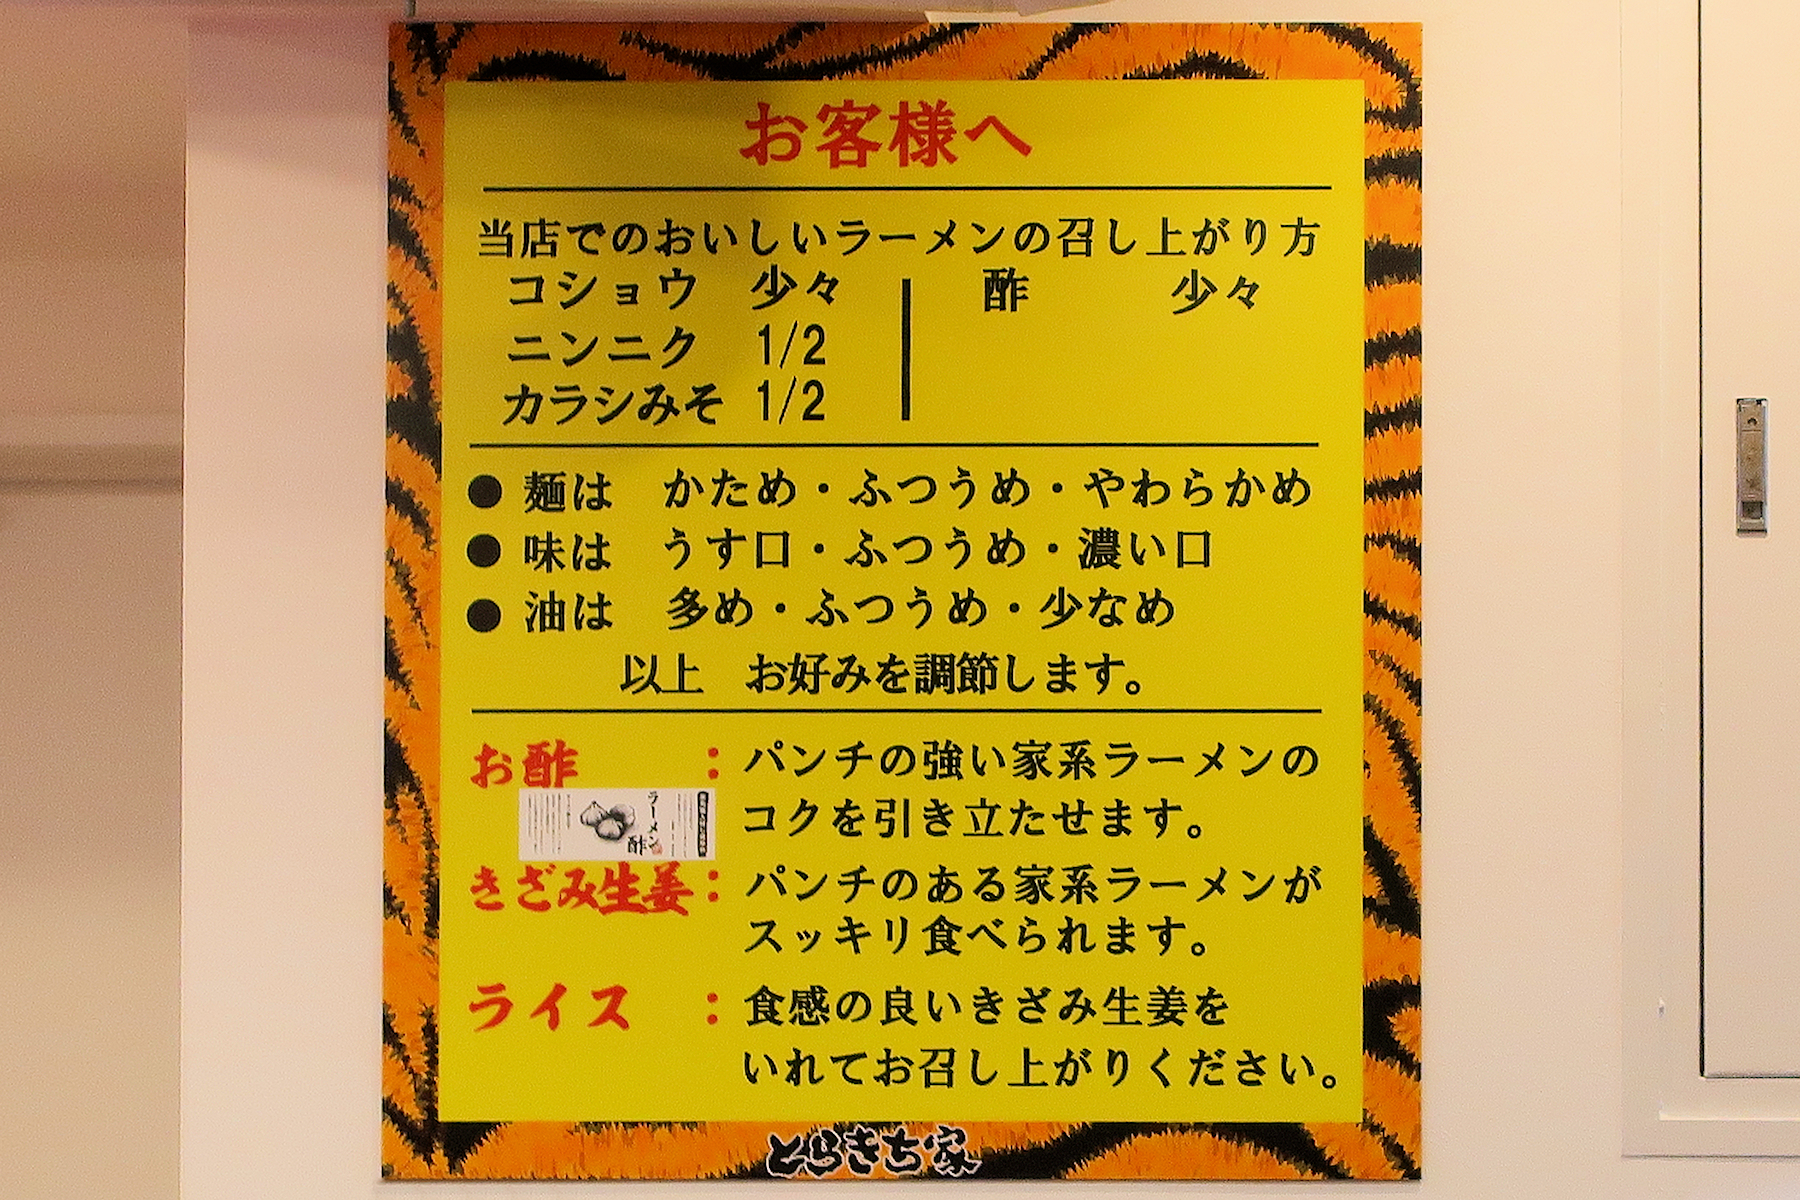 お客様へ
当店でのおいしいラーメンの召し上がり方
コショウ 少々 酢 少々
ニンニク 1/2
カラシみそ 1/2
● 麺は かため・ふつうめ・やわらかめ
● 味は うす口・ふつうめ・濃い口
● 油は 多め・ふつうめ・少なめ
以上 お好みを調節します。
お酢 : パンチの強い家系ラーメンの
コクを引き立たせます。
ラーメン
酢
きざみ生姜 : パンチのある家系ラーメンが
スッキリ食べられます。
ライス : 食感の良いきざみ生姜を
いれてお召し上がりください。
とらきち家